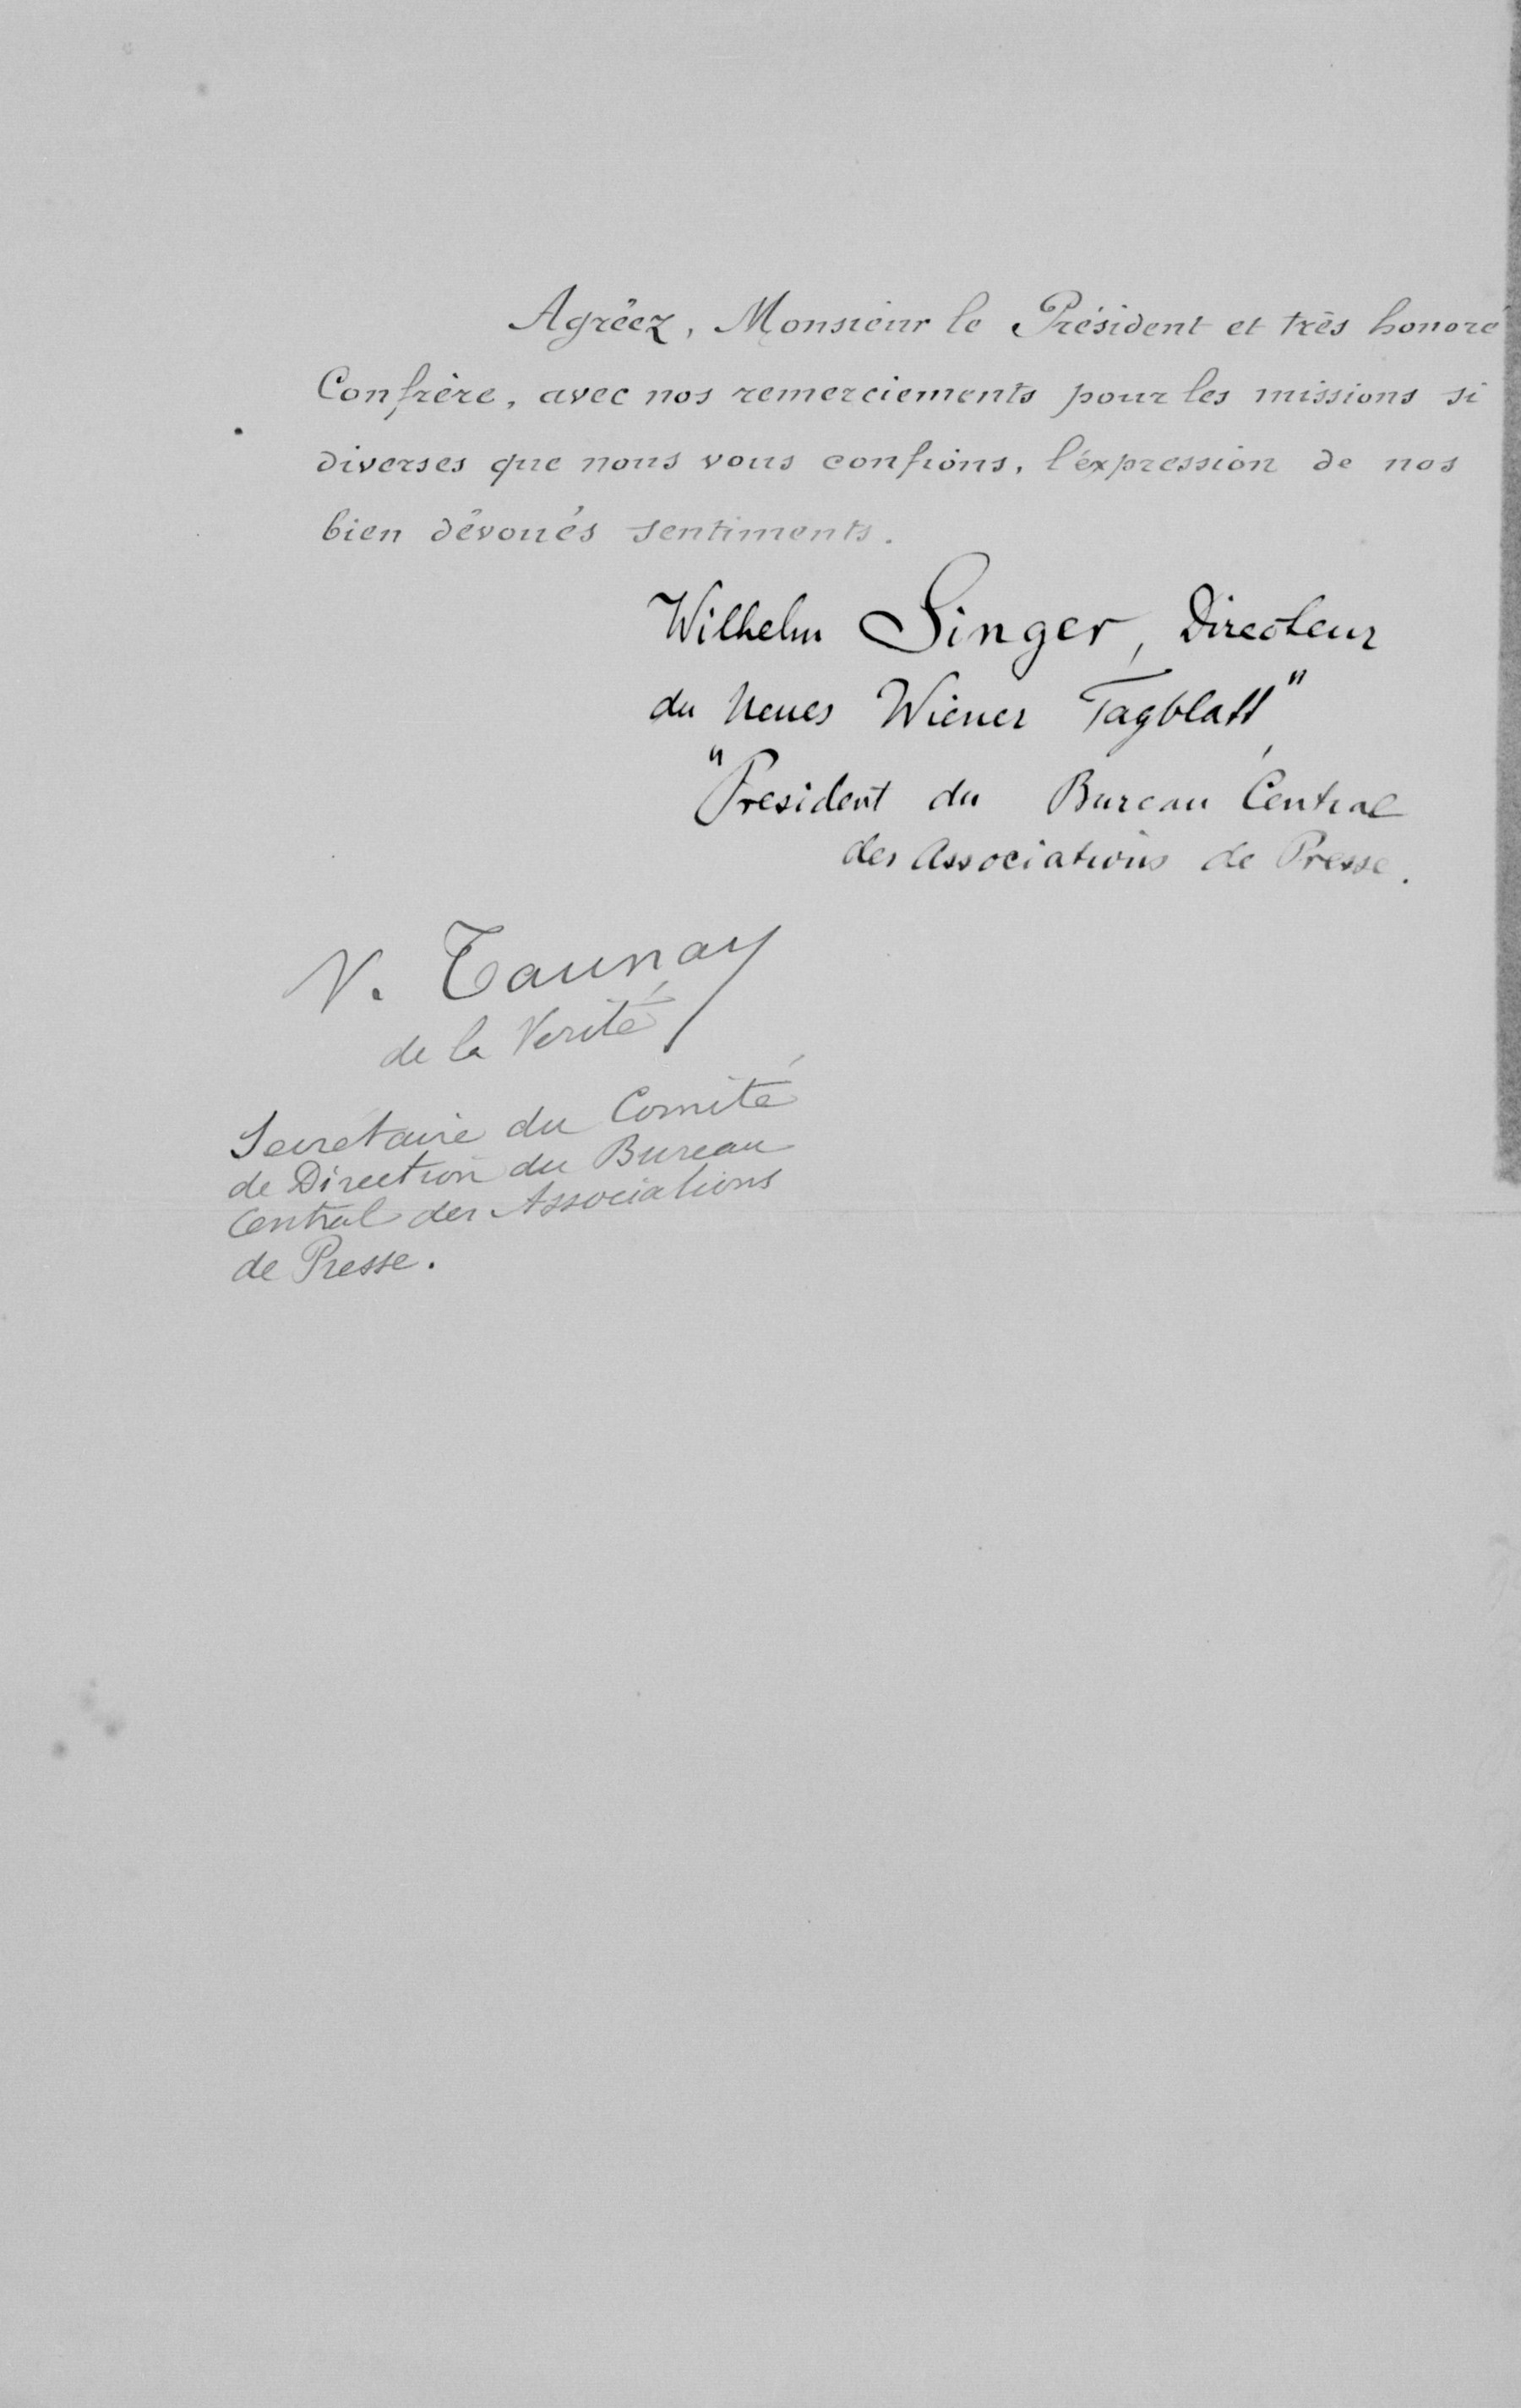 Agréez, Monsieur le Président et très honoré
Confrère, avec nos remerciements pour les missions si
diverses que nous vous confions, l'éxpression de nos
bien dévoués sentiments.
Wilhelm Singer, Directeur
du Neues Wiener Tagblatt"
"President du Bureau Central
des Associations de Presse.
V. Taunay
de la Verité
Secretaire du Comité
de Direction du Bureau
Central des Associations
de Presse.